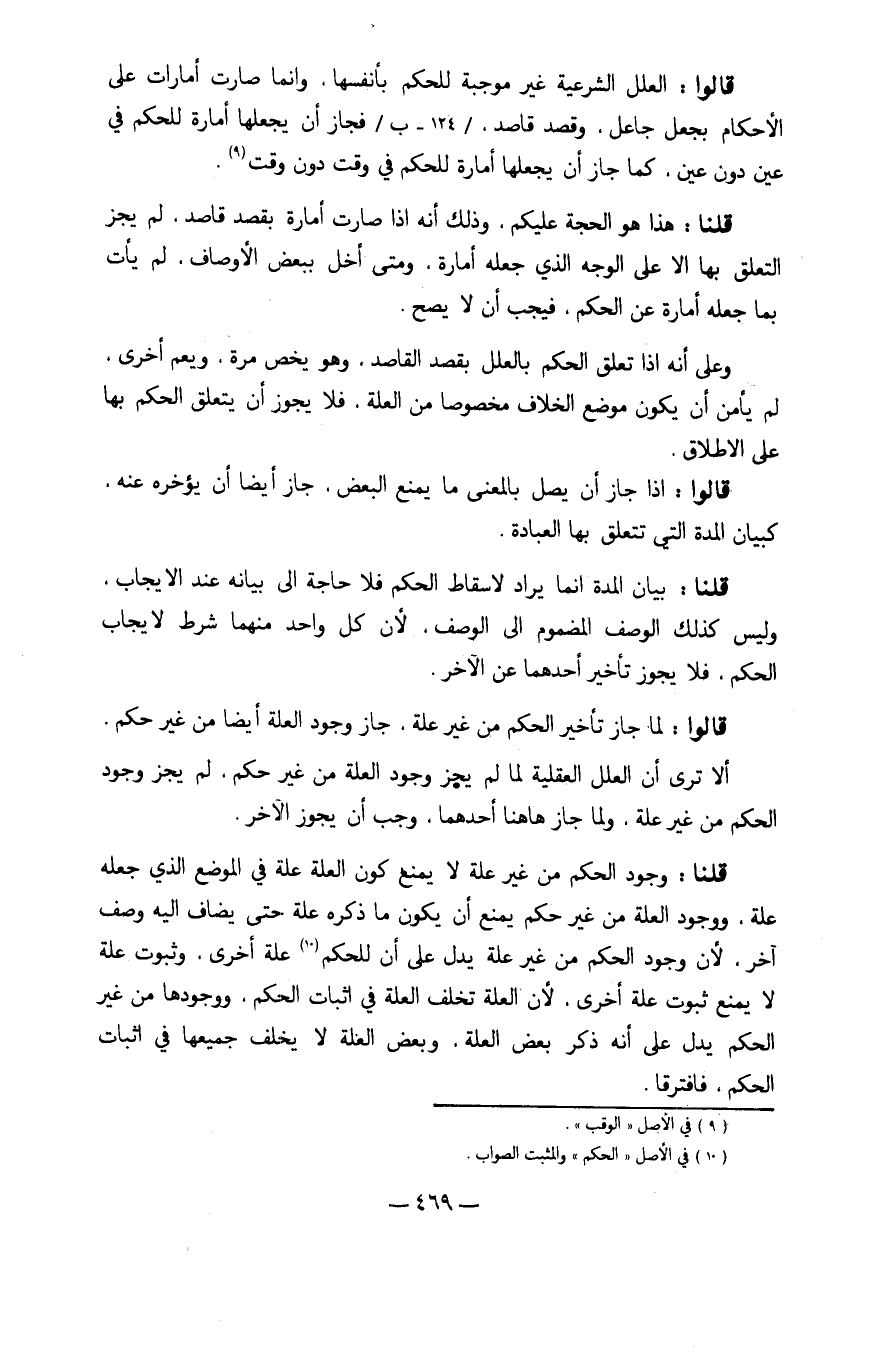 قالوا : العلل الشرعية غير موجبة للحكم بأنفسها ، وانما صارت أمارات على
الأحكام بجعل جاعل ، وقصد قاصد ، / ١٢٤ - ب / فجاز أن يجعلها أمارة للحكم في
عين دون عين ، كما جاز أن يجعلها أمارة للحكم في وقت دون وقت(٩) .
قلنا : هذا هو الحجة عليكم ، وذلك أنه اذا صارت أمارة بقصد قاصد ، لم يجز
التعلق بها الا على الوجه الذي جعله أمارة ، ومتى أخل ببعض الأوصاف ، لم يأت
بما جعله أمارة عن الحكم ، فيجب أن لا يصح .
وعلى أنه اذا تعلق الحكم بالعلل بقصد القاصد ، وهو يخص مرة ، ويعم أخرى ،
لم يأمن أن يكون موضع الخلاف مخصوصا من العلة ، فلا يجوز أن يتعلق الحكم بها
على الاطلاق .
قالوا : اذا جاز أن يصل بالمعنى ما يمنع البعض ، جاز أيضا أن يؤخره عنه ،
كبيان المدة التي تتعلق بها العبادة .
قلنا : بيان المدة انما يراد لاسقاط الحكم فلا حاجة الى بيانه عند الايجاب ،
وليس كذلك الوصف المضموم الى الوصف ، لأن كل واحد منهما شرط لايجاب
الحكم ، فلا يجوز تأخير أحدهما عن الآخر .
قالوا : لما جاز تأخير الحكم من غير علة ، جاز وجود العلة أيضا من غير حكم .
ألا ترى أن العلل العقلية لما لم يجز وجود العلة من غير حكم ، لم يجز وجود
الحكم من غير علة ، ولما جاز هاهنا أحدهما ، وجب أن يجوز الآخر .
قلنا : وجود الحكم من غير علة لا يمنع كون العلة علة في الموضع الذي جعله
علة ، ووجود العلة من غير حكم يمنع أن يكون ما ذكره علة حتى يضاف اليه وصف
آخر ، لأن وجود الحكم من غير علة يدل على أن للحكم(١٠) علة أخرى ، وثبوت علة
لا يمنع ثبوت علة أخرى ، لأن العلة تخلف العلة في اثبات الحكم ، ووجودها من غير
الحكم يدل على أنه ذكر بعض العلة ، وبعض العلة لا يخلف جميعها في اثبات
الحكم ، فافترقا .
( ٩ ) في الأصل « الوقب » .
( ١٠ ) في الأصل « الحكم » والمثبت الصواب .
— ٤٦٩ —